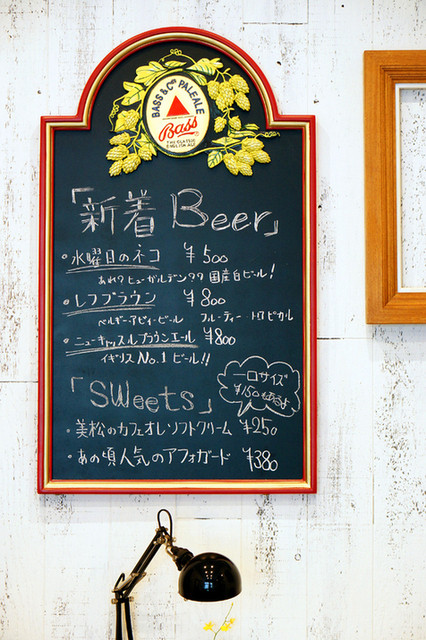 BASS & Co's PALE ALE
Bass
THE CLASSIC
ENGLISH ALE
「新着 Beer」
・水曜日のネコ ¥500
国産白ビール!
・レフブラウン ¥800
ベルギーアビィ・ビール フルーティー・トロピカル
・ニューキャッスルブラウンエール ¥800
イギリス No.1 ビール!!
一口サイズ
¥150
「SWeets」
・美松のカフェオレソフトクリーム ¥250
・あの頃人気のアフォガード ¥380